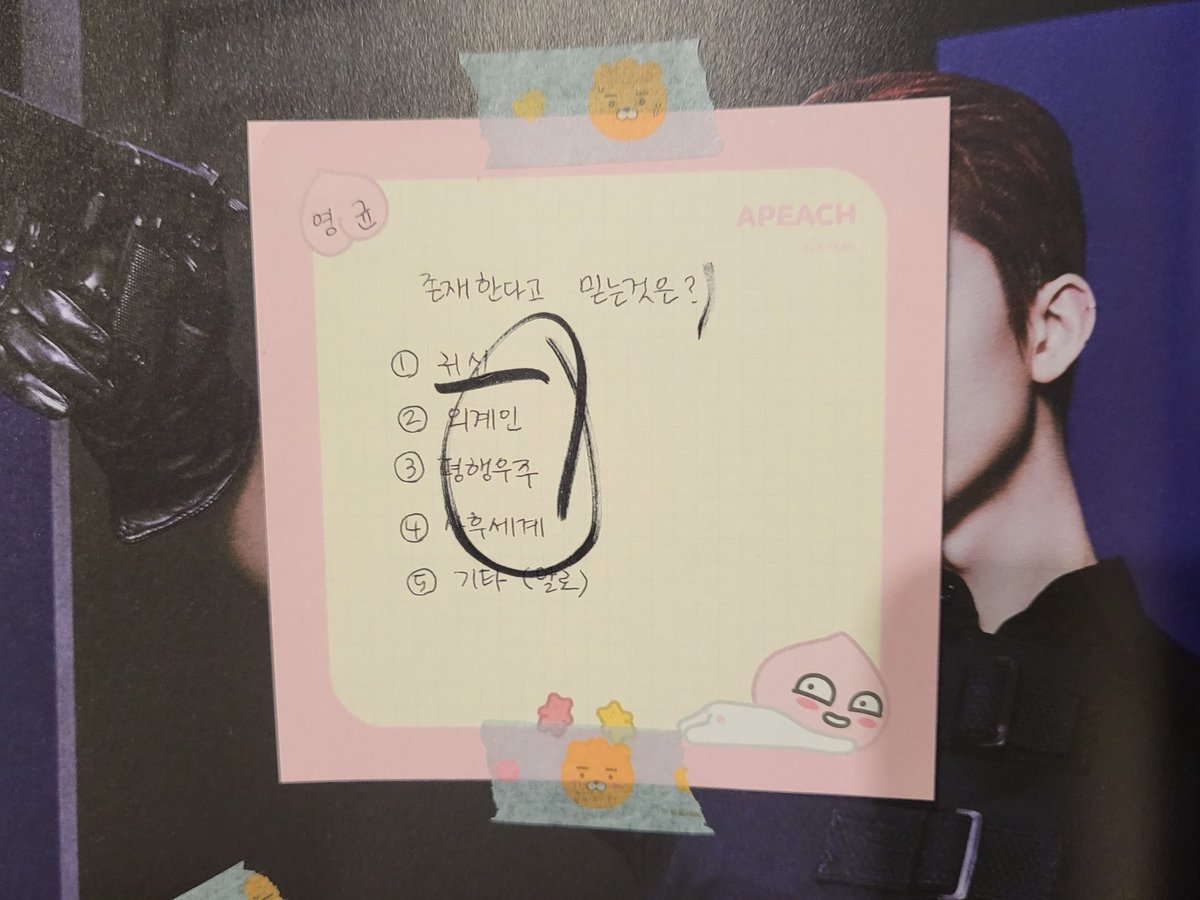 영균
APEACH
존재한다고 믿는것은?
① 귀신
② 외계인
③ 평행우주
④ 사후세계
⑤ 기타 (말로)